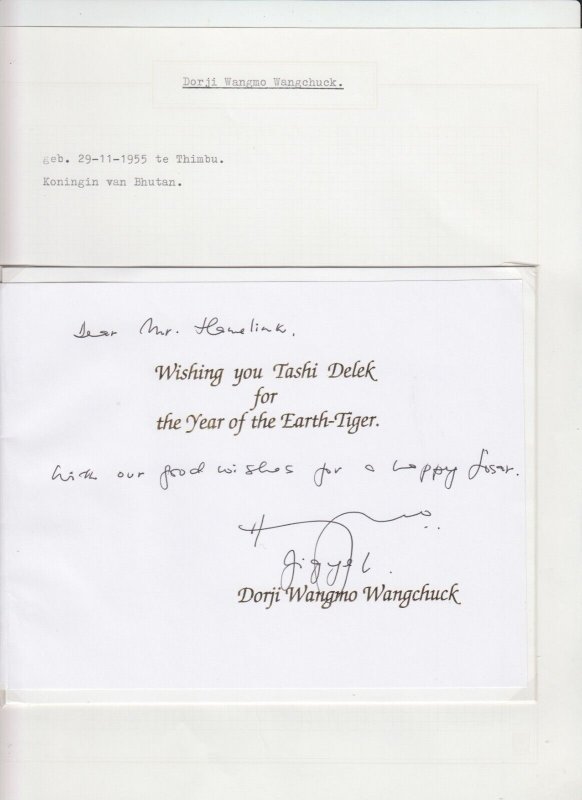 Dorji Wangmo Wangchuck.
geb. 29-11-1955 te Thimbu.
Koningin van Bhutan.
Dear Mr. Hamelink,
Wishing you Tashi Delek
for
the Year of the Earth-Tiger.
With our good wishes for a happy Losar.
Dorji Wangmo Wangchuck